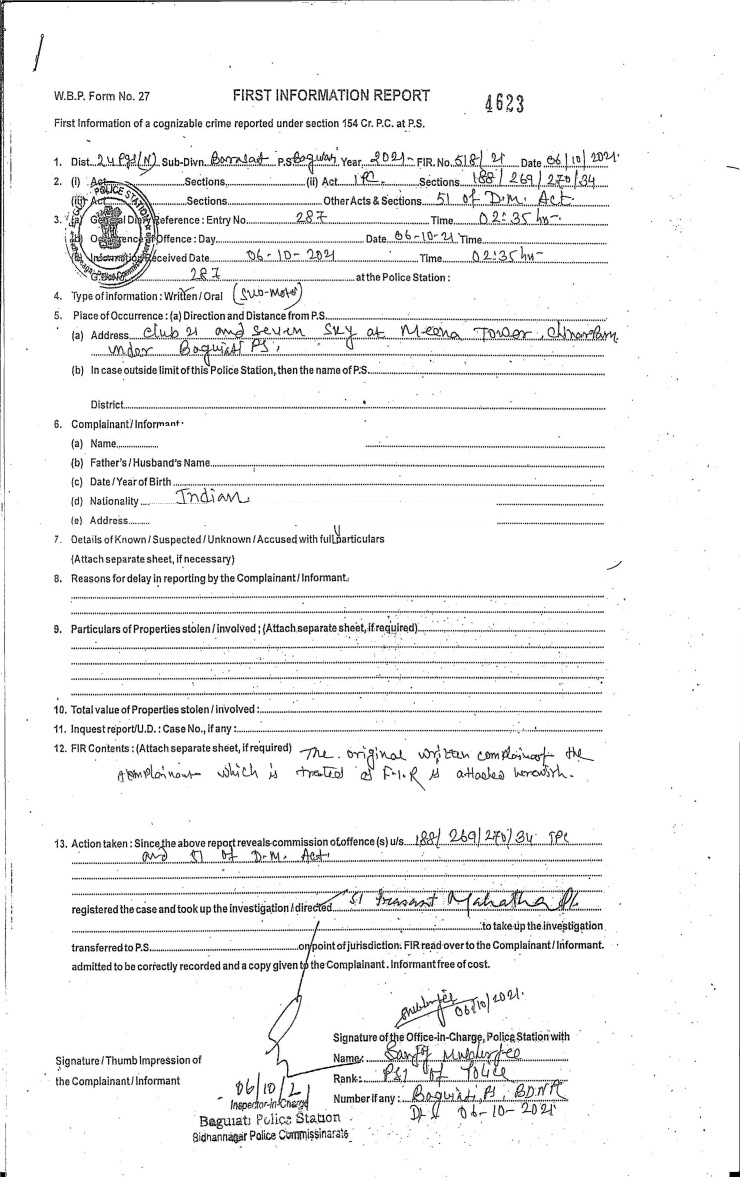 W.B.P. Form No. 27 FIRST INFORMATION REPORT 4623
First Information of a cognizable crime reported under section 154 Cr. P.C. at P.S.
1. Dist. 24 Pgs (N) Sub-Divn. Barasat P.S. Baguiati Year 2021- FIR. No. 518/21 Date 06/10/2021.
2. (i) Act Sections (ii) Act IPC. Sections 188/269/270/34
(iii) Act Sections Other Acts & Sections 51 of D.M. Act.
3. (a) General Diary Reference : Entry No. 287 Time 02:35 hr-
(b) Occurrence of Offence : Day Date 06-10-21 Time
(c) Information Received Date 06-10-2021 Time 02:35 hr-
G. 287 at the Police Station :
4. Type of information : Written / Oral (Suo-Moto)
5. Place of Occurrence : (a) Direction and Distance from P.S.
(a) Address Club 21 and Seven Sky at Meena Tower, Chinarpark
under Baguiati PS,
(b) In case outside limit of this Police Station, then the name of P.S.
District
6. Complainant / Informant
(a) Name
(b) Father's / Husband's Name
(c) Date / Year of Birth
(d) Nationality Indian
(e) Address
7. Details of Known / Suspected / Unknown / Accused with full particulars
(Attach separate sheet, if necessary)
8. Reasons for delay in reporting by the Complainant / Informant.
9. Particulars of Properties stolen / involved ; (Attach separate sheet, if required)
10. Total value of Properties stolen / involved :
11. Inquest report/U.D. : Case No., if any :
12. FIR Contents : (Attach separate sheet, if required) The original written complain of the
complainant which is treated as F.I.R is attached herewith.
13. Action taken : Since the above report reveals commission of offence (s) u/s. 188/269/270/34 IPC
and 51 of D.M. Act.
registered the case and took up the investigation / directed SI Prasant Mahatha
to take up the investigation
transferred to P.S. on point of jurisdiction. FIR read over to the Complainant / Informant.
admitted to be correctly recorded and a copy given to the Complainant. Informant free of cost.
06/10/2021.
Signature of the Office-in-Charge, Police Station with
Signature / Thumb Impression of
the Complainant / Informant
Name: Sanjoy Mukherjee
Rank: PSI of Police
Number if any: Baguiati PS, BDNPC
Dt. 06-10-2021
06/10/21
Inspector-in-Charge
Baguiati Police Station
Bidhannagar Police Commissinarate